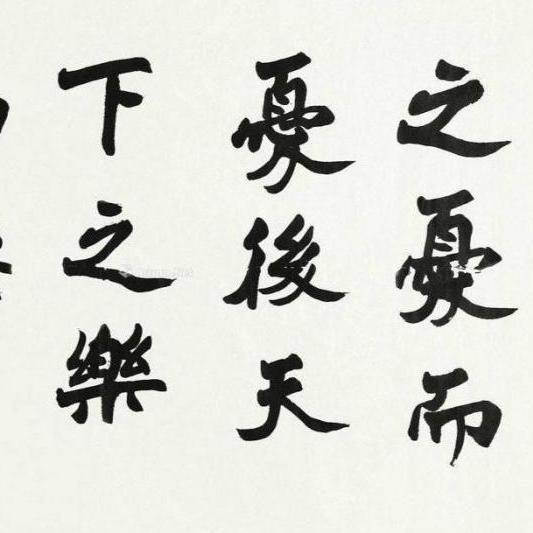 之憂而
憂後天
下之樂